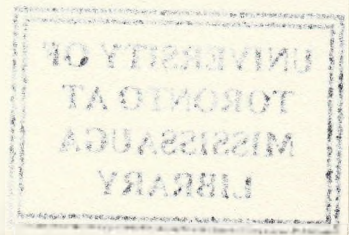 UNIVERSITY OF
TORONTO AT
MISSISSAUGA
LIBRARY